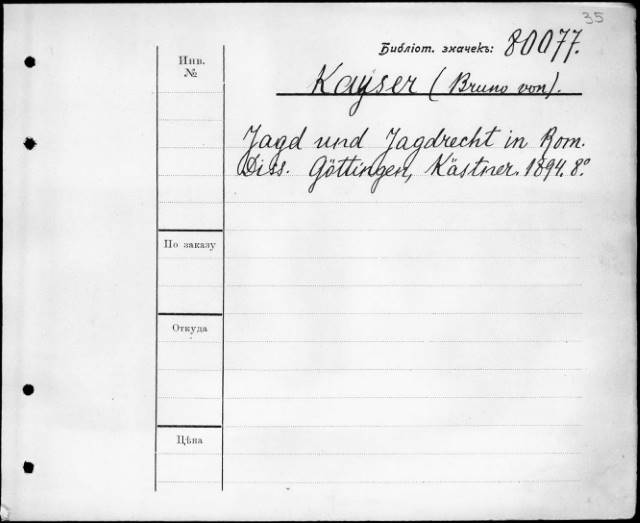 35
Библіот. значекъ: 80077.
Инв.
№
Kayser (Bruno von).
Jagd und Jagdrecht in Rom.
Diss. Göttingen, Kästner. 1894. 8°.
По заказу
Откуда
Цѣна